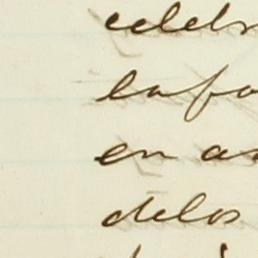 celebr
la fo
en as
delos